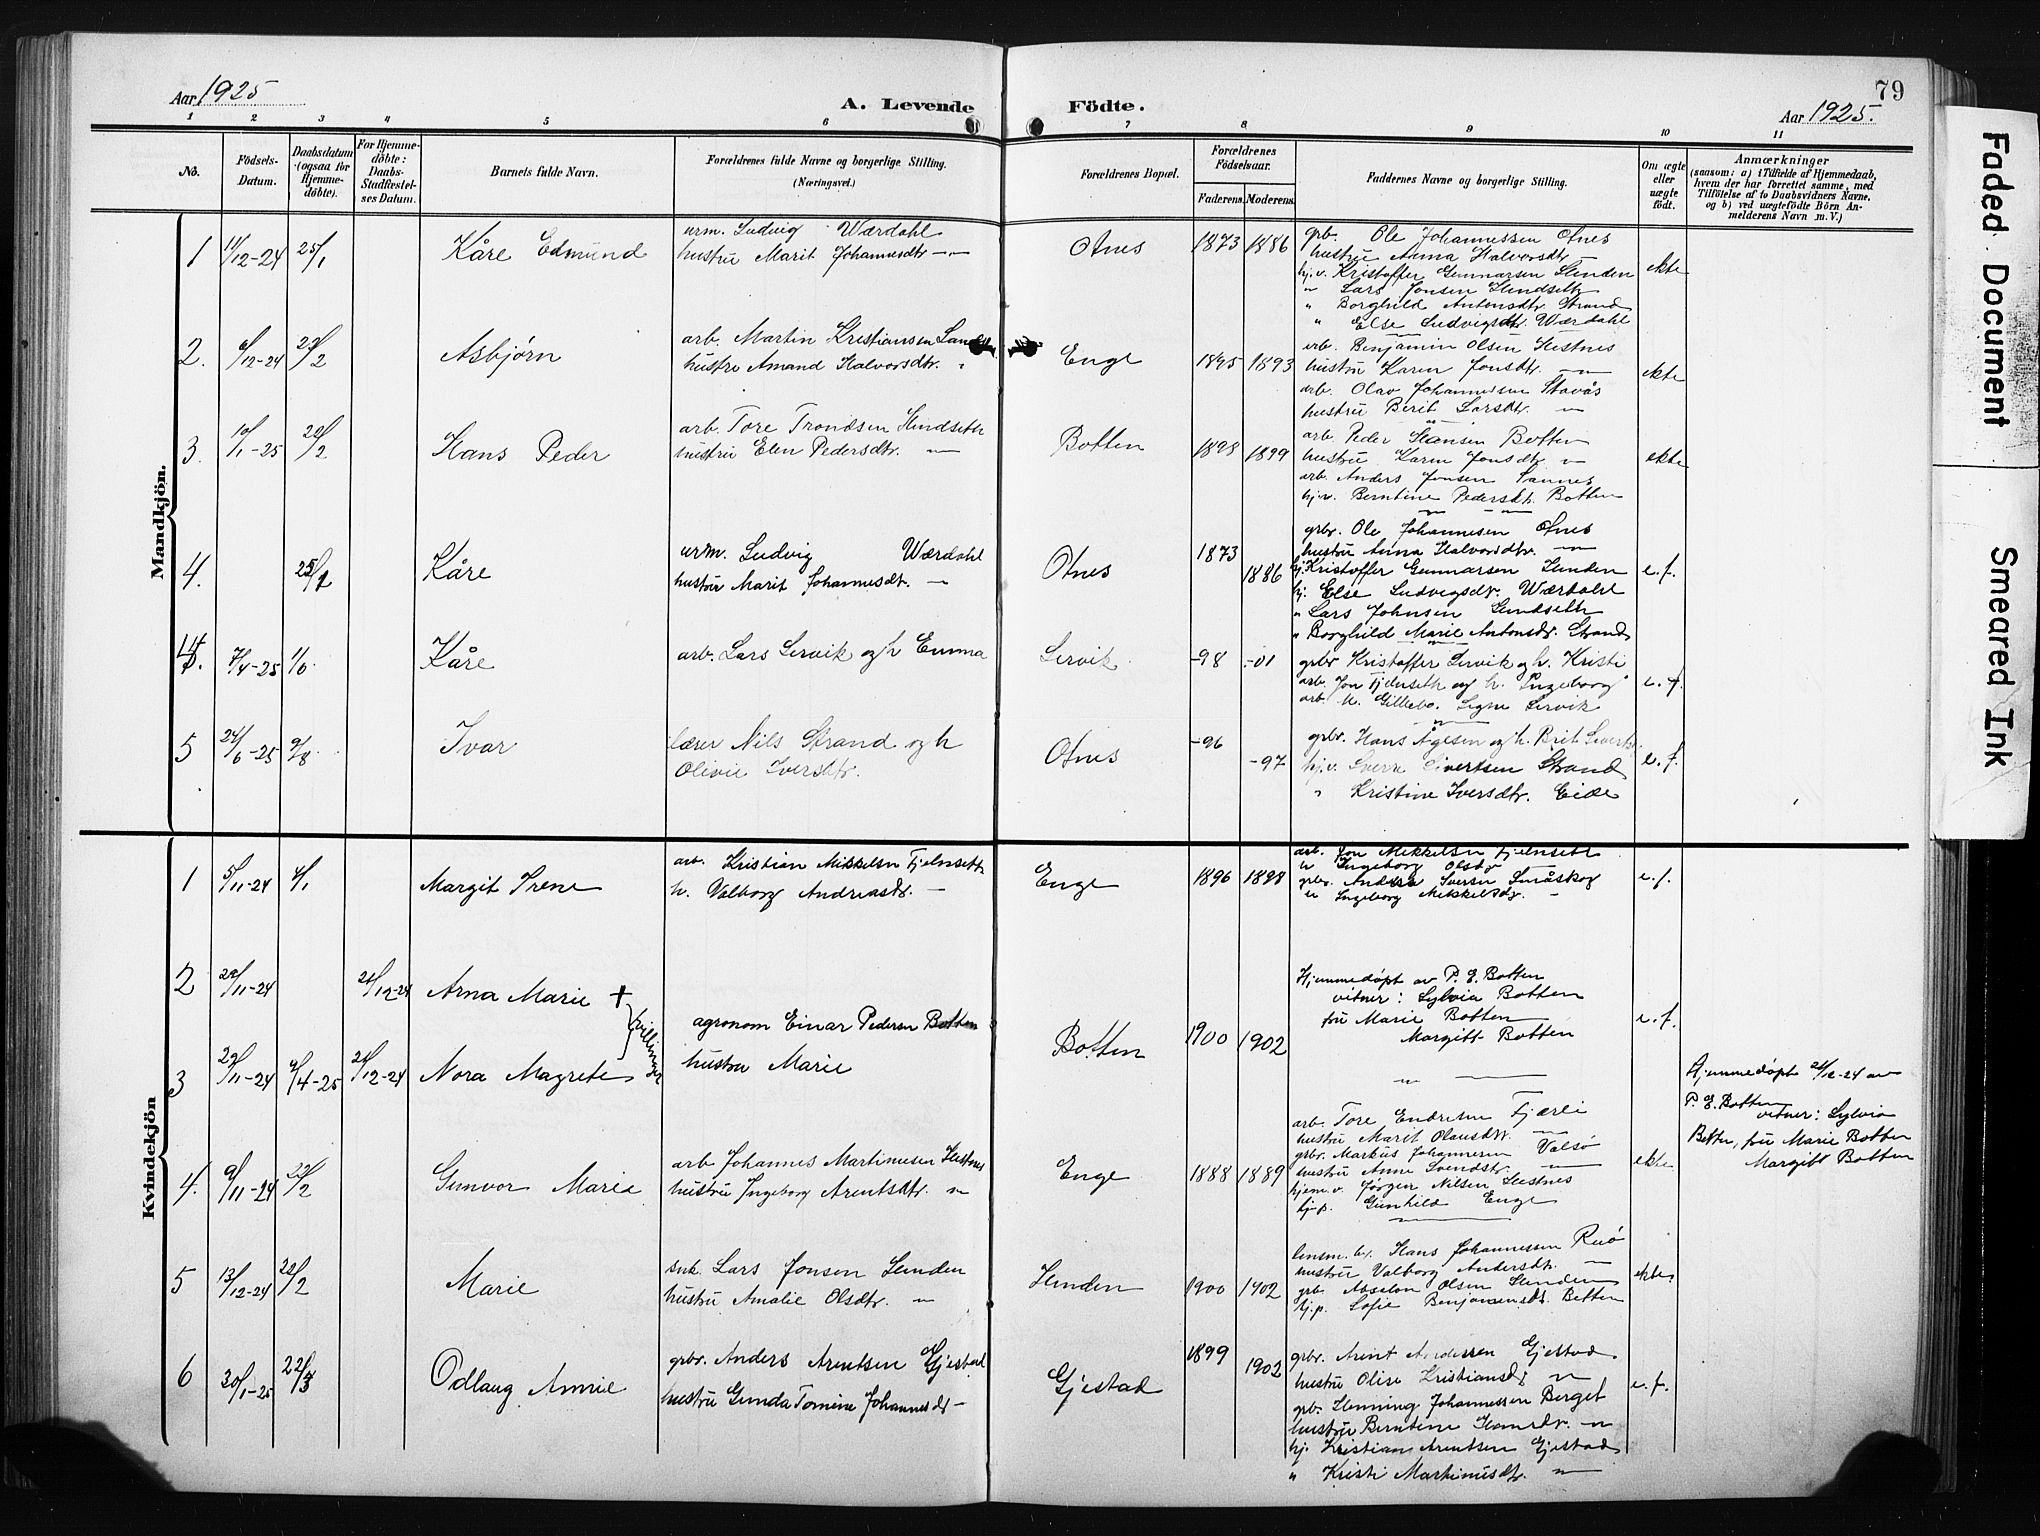 Aar 1925
A. Levende Födte.
79
Aar 1925.
1 2 3 4 5 6 7 8 9 10 11
No.
Födsels-Datum.
Daabsdatum (ogsaa for Hjemmedöbte).
For Hjemmedöbte: Daabs-Stadfæstelses Datum.
Barnets fulde Navn.
Forældrenes fulde Navne og borgerlige Stilling.
(Næringsvei.)
Forældrenes Bopæl.
Forældrenes Födselsaar.
Faderens. Moderens.
Faddernes Navne og borgerlige Stilling.
Om ægte eller uægte födt.
Anmærkninger
(saasom: a) i Tilfælde af Hjemmedaab,
hvem der har forrettet samme, med
Tilföielse af to Daabsvidners Navne,
og b) ved uægtefödte Börn An-
melderens Navn m.V.)
Mandkjön.
1 11/12-24 25/1 Kåre Edmund
urm. Ludvig Wærdahl
hustru Marit Johannesdtr -"-
Otnes 1873 1886
grb. Ole Johannessen Otnes
hustru Anna Halvorsdtr —
hj.v. Kristoffer Gunnarsen Henden
" Lars Jonsen Hendseth
" Borghild Antonsdtr Strand
" Else Ludvigsdtr. Wærdahl
ekte
2. 6/12-24 22/2 Asbjørn
arb. Martin Kristiansen
hustru Amand Halvorsdtr. "
Enge 1895 1893
arb. Benjamin Olsen Hestnes
hustru Karen Jonsdtr. —"—
arb. Olav Johannessen Stavås
hustru Berit Larsdtr. —"—
ekte
3. 10/1-25 22/2 Hans Peder
arb. Tore Trondsen Hendseth
hustru Elen Pedersdtr. —"—
Botten 1898 1899
arb. Peder Hansen Botten
hustru Karen Jonsdtr. —"—
arb. Anders Jonsen Vannes
hj.v. Berntine Pedersdtr. Botten
ekte
4. 25/1 Kåre
urm. Ludvig Wærdahl
hustru Marit Johannesdt. —"—
Otnes 1873 1886
grbr. Ole Johannesen Otnes
hustru Anna Halvorsdtr. —"—
hj. Kristoffer Gunnarsen Henden
hj. Else Ludvigsdtr. Wærdahl
" Lars Johnsen Hendseth
" Borghild Marie Antonsdtr. Strand
e.f.
4. 7/4-25 1/6. Kåre
arb. Lars Servik og h Emma
Servik -98 -01
grbr Kristoffer Servik og h. Kristi
arb. Jon Fjelnseth og h. Ingeborg
arb. N. Gilleba. Signe Servik
e.f.
5 24/6-25 9/8. Ivar
lærer Nils Strand og h
Olivie Iversdtr.
Otnes -96 -97
grbr. Hans Ågesen og h. Brit Sivertsd.
hj.v. Sverre Sivertsen Strand
" Kristine Iversdtr. Eide
e.f.
Kvindekjön
1 5/11-24 4/1 Margit Irene
arb. Kristian Mikkelsen Fjelnseth
h. Valborg Andreasdtr. —
Enge 1896 1898
arb. Jon Mikkelsen Fjelnseth
h Ingeborg Olsdtr
grbr. Andreas Iversen Småskog
h Ingeborg Mikkelsdtr. —
e.f.
2 22/11-24 21/12-24 Arna Marie +
3 22/11-24 9/4-25 21/12-24 Nora Magrete
tvillinger
agronom Einar Pedersen Botten
hustru Marie
Botten 1900 1902
Hjemmedøpt av P. E. Botten
vitner: Sylvia Botten
fru Marie Botten
Margitt Botten
e.f.
—"— ———
Hjemmedøpt 21/12-24 av
P. E. Botten
vitner: Sylvia
Botten, fru Marie Botten
Margitt Botten
4. 9/11-24 22/2 Gunvor Marie
arb Johannes Martinusen Hestnes
hustru Ingeborg Arentsdtr. —"—
Enge 1888 1889
arb. Tore Endresen Fjærli
hustru Marit Olausdtr. —"—
grbr. Markus Johannesen Valsø
hustru Anne Svendsdtr. —"—
hjem.v. Jørgen Nilsen Hestnes
hj.p. Gunhild Enge
ekte
5 13/12-24 22/2 Marie
snk. Lars Jonsen Henden
hustru Amalie Olsdtr. —"—
Henden 1900 1902
lensm. bet. Hans Johannessen Ruø
hustru Valborg Andersdtr. —"—
grb. Absalon Olsen Henden
hj.p. Sofie Benjaminsdtr. Betten
ekte
6 30/1-25 22/3 Odlaug Annie
grbr. Anders Arentsen Gjestad
hustru Gunda Tomine Johannesdt —"—
Gjestad 1899 1902
grbr. Arent Andersen Gjestad
hustru Olise Kristiansdtr —"—
grb. Henning Johannessen Berget
hustru Berntine Hansdtr. —"—
hj. Kristian Arentsen Gjestad
" Kristi Martinusdtr. —"—
e.f.
Faded Document
Smeared Ink